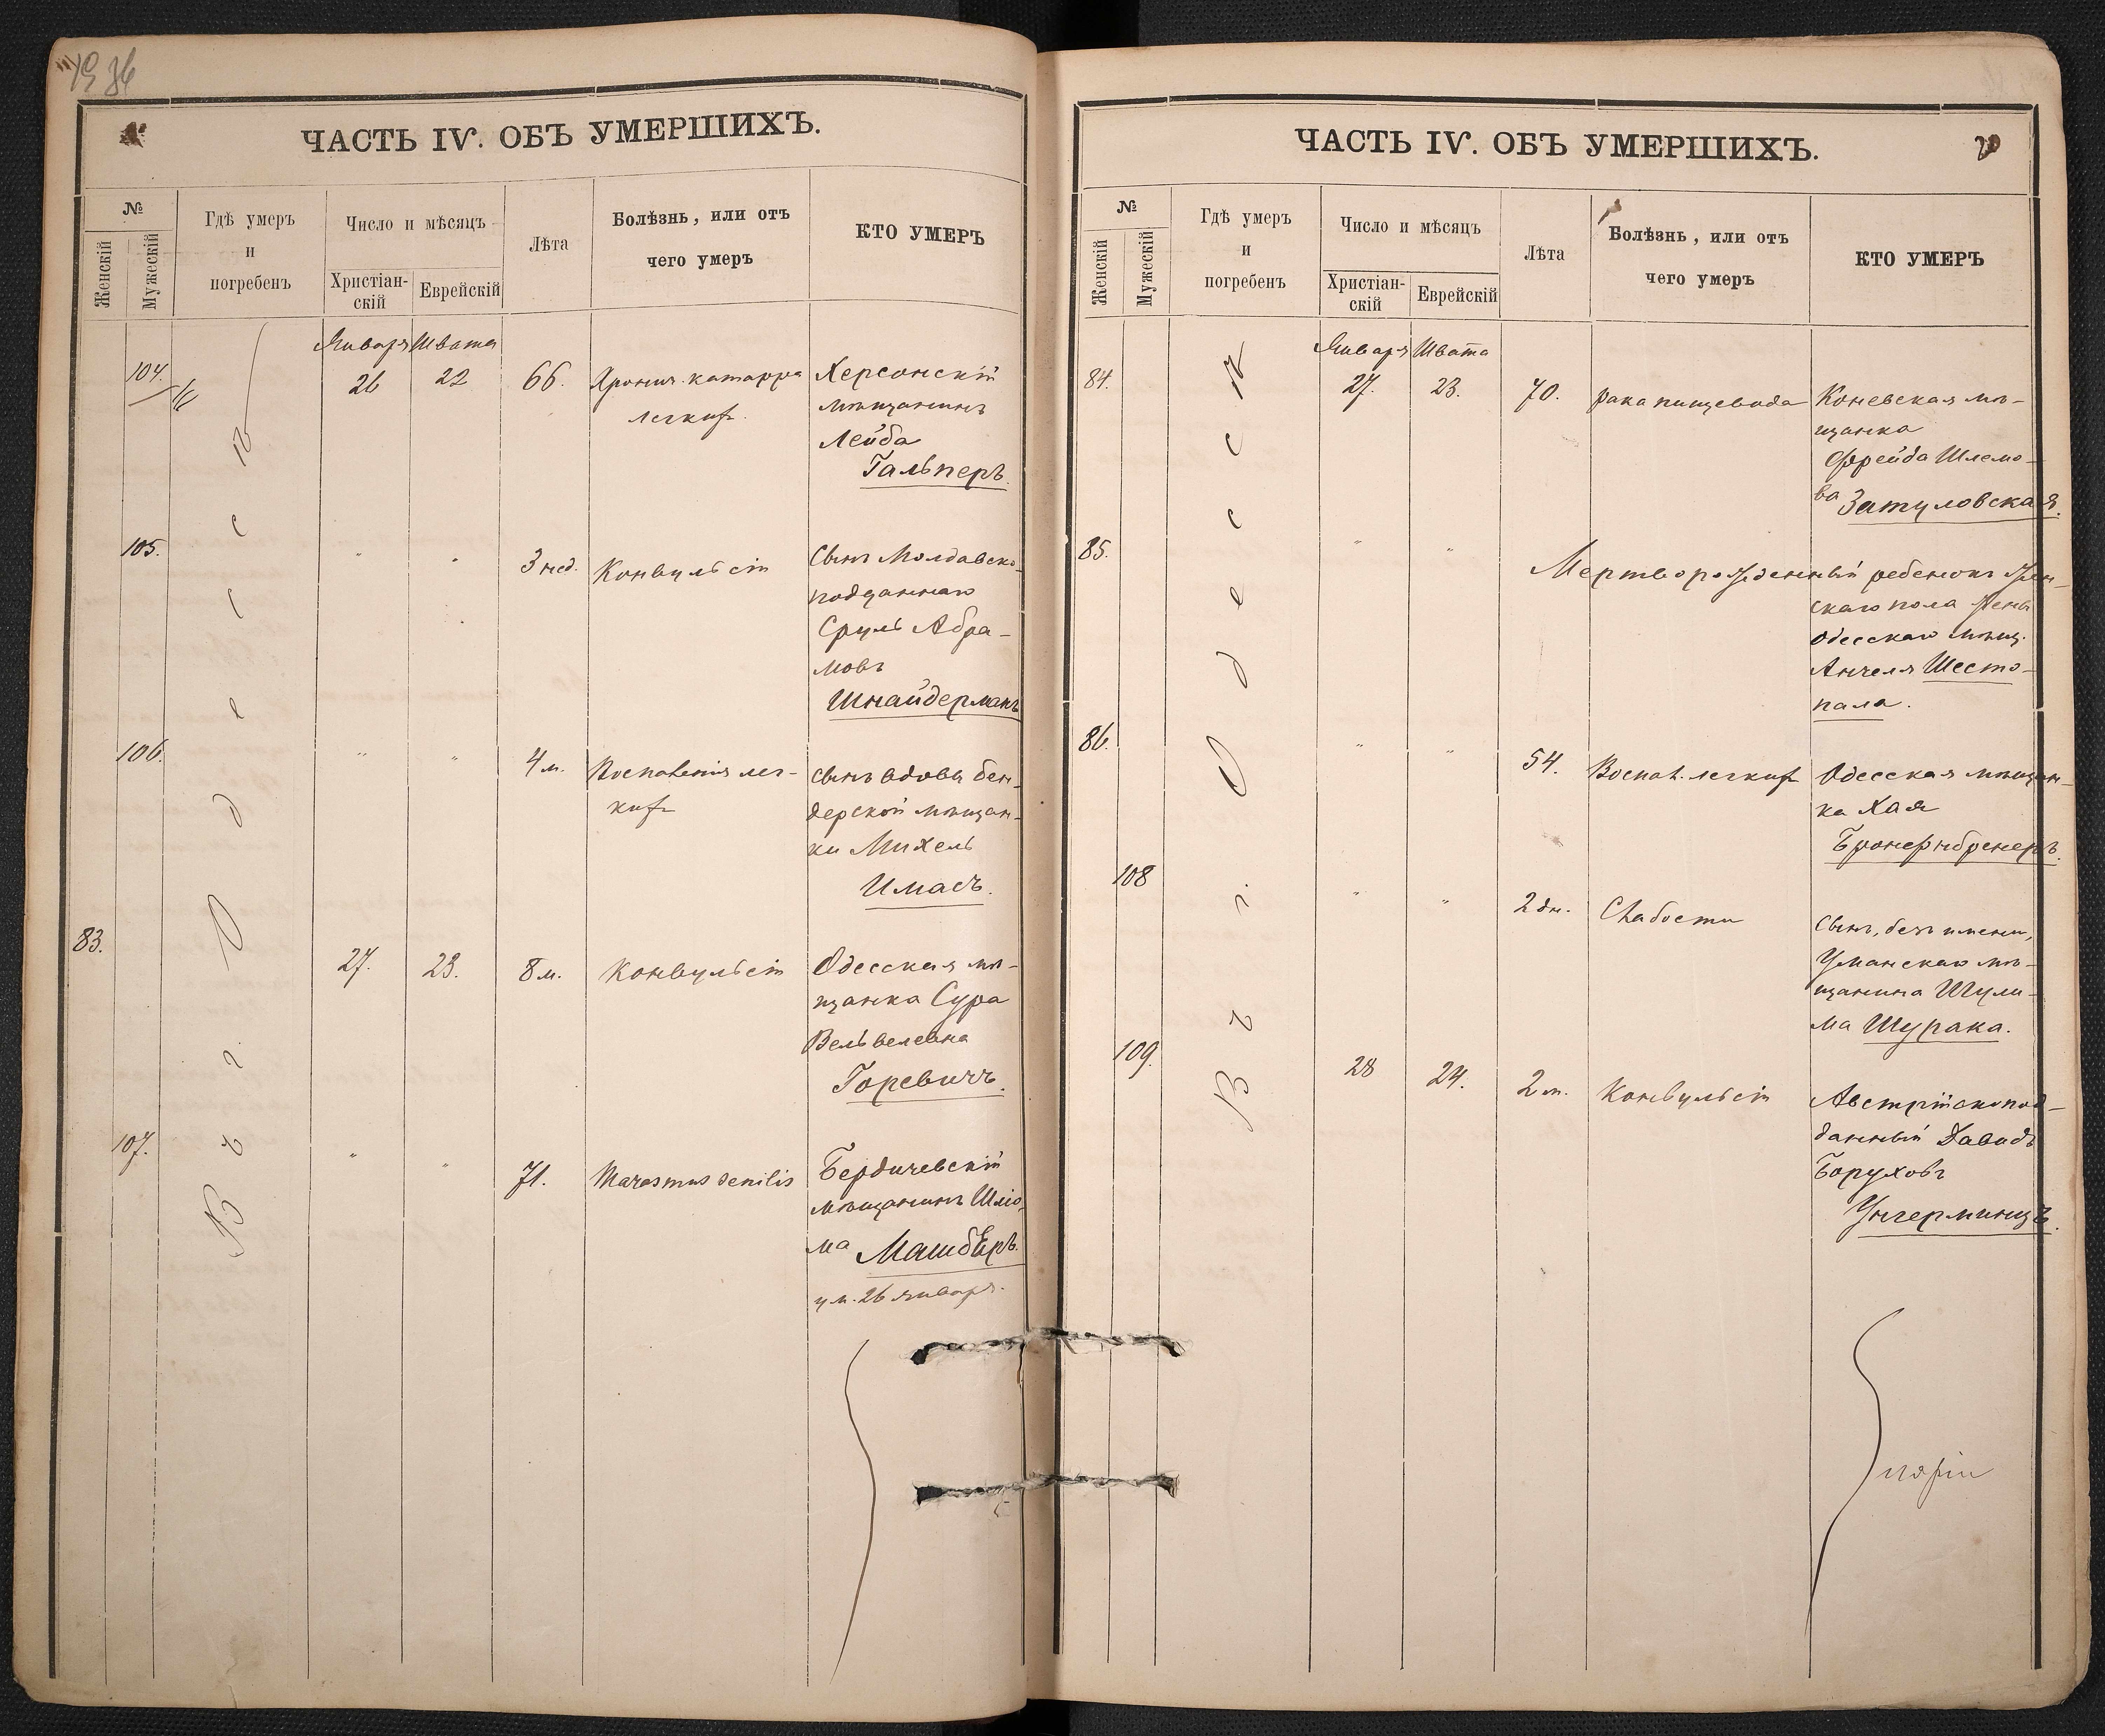 36
ЧАСТЬ IV. ОБЪ УМЕРШИХЪ.
№
Женскій
Мужескій
Гдѣ умеръ
и
погребенъ
Число и мѣсяцъ
Христіан-
скій
Еврейскій
Лѣта
Болѣзнь, или отъ
чего умеръ
КТО УМЕРЪ
Въ г. Одессѣ
Января Швата
104. 26 22 66. Хронич. катарра
легкихъ
Херсонскій
мѣщанинъ
Лейба
Гальперъ.
105. " " 3 нед. Конвульсіи
Сынъ Молдавско-
подданнаго
Сруль Абра-
мовъ
Шнайдерманъ
106. " " 4 м. Воспаленія лег-
кихъ
сынъ вдовы Бен-
дерской мѣщан-
ки Михель
Имасъ.
83. 27. 23. 8 м. Конвульсіи
Одесская мѣ-
щанка Сура
Вельвелевна
Горевичъ.
107. " " 71. Marasmus senilis
Бердичевскій
мѣщанинъ Шліо-
ма Машбѣръ.
ум. 26 января.
ЧАСТЬ IV. ОБЪ УМЕРШИХЪ.
20
№
Женскій
Мужескій
Гдѣ умеръ
и
погребенъ
Число и мѣсяцъ
Христіан-
скій
Еврейскій
Лѣта
Болѣзнь, или отъ
чего умеръ
КТО УМЕРЪ
Въ г. Одессѣ
Января Швата
84. 27. 23. 70. рака пищевода
Коневская мѣ-
щанка
Фрейда Шлемо-
ва Затуловская.
85. " " Мертворожденный ребенокъ жен-
скаго пола
Одесскаго мѣщ.
Анчеля Шесто-
пала.
86. " " 54. Воспал. легкихъ
Одесская мѣщан-
ка Хая
108 " " 2 дн. Слабости
Сынъ, безъ имени,
Уманскаго мѣ-
щанина Шули-
ма Шурака.
109. 28 24. 2 м. Конвульсіи
Австрійскопод-
данный Давидъ
Боруховъ
Унгерминцъ.